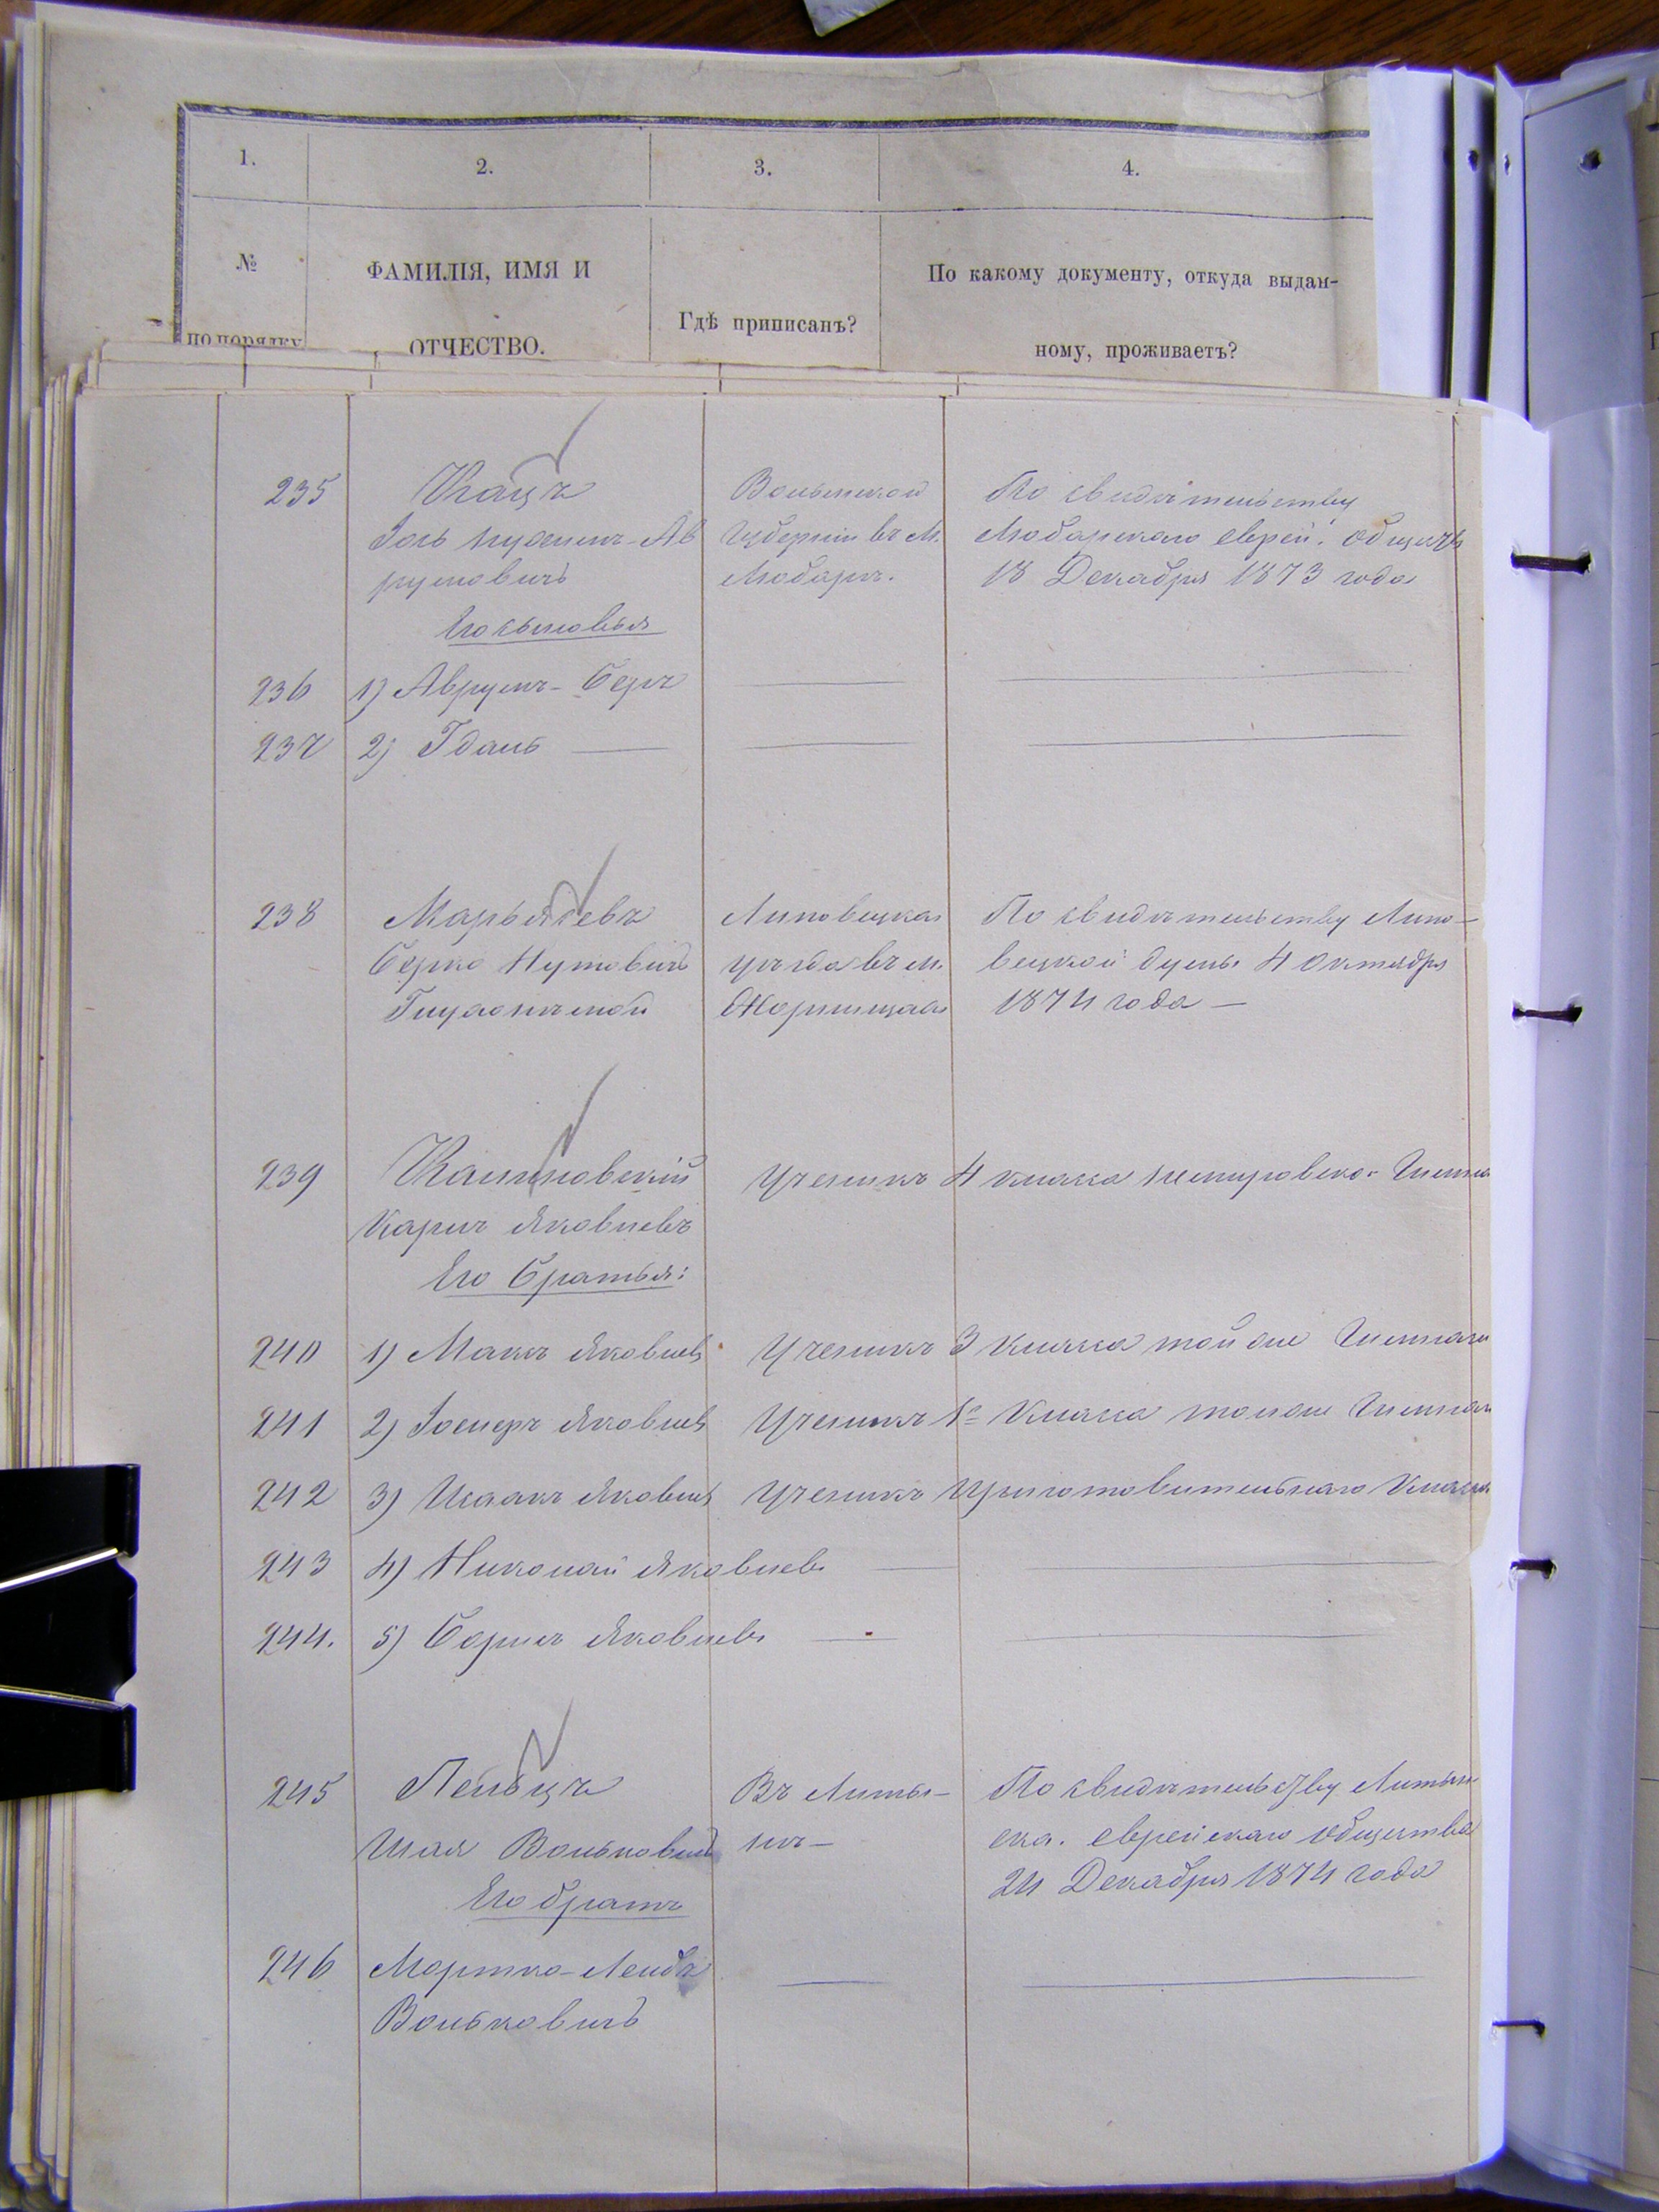 1.
2.
3.
4.
№
по порядку
ФАМИЛІЯ, ИМЯ И
ОТЧЕСТВО.
Гдѣ приписанъ?
По какому документу, откуда выдан-
ному, проживаетъ?
235
Кацъ
Іось Нухимъ-Ав
румовичъ
Его сыновья
Волынской
Губерніи въ М.
Любарѣ.
По свидѣтельству
Любарскаго еврей. общества
18 Декабря 1873 года
236 1) Аврумъ-Беръ
237 2)
238
Берко Нутовичъ
Липовецкаго
уѣзда въ м.
Жорнищахъ
По свидѣтельству Липо-
вецкой думы 4 Октября
1874 года —
239
Карлъ Яковлевъ
Его Братья:
Ученикъ 4 класса Немировско. Гимна
240 1) Макъ Яковлевъ Ученикъ 3 класса той же Гимназіи
241 2) Яковлевъ Ученикъ 1го Класса той же Гимназіи
242 3) Исаакъ Яковлевъ Ученикъ Приготовительнаго Класса
243 4) Николай Яковлевъ
244. 5) Борисъ Яковлевъ
245
Пельцъ
Шая Вольковичъ
Его братъ
Въ Литы-
нѣ-
По свидѣтельству Литын
ска. еврейскаго общества
24 Декабря 1874 года
246 Мортко-Лейбъ
Вольковичъ